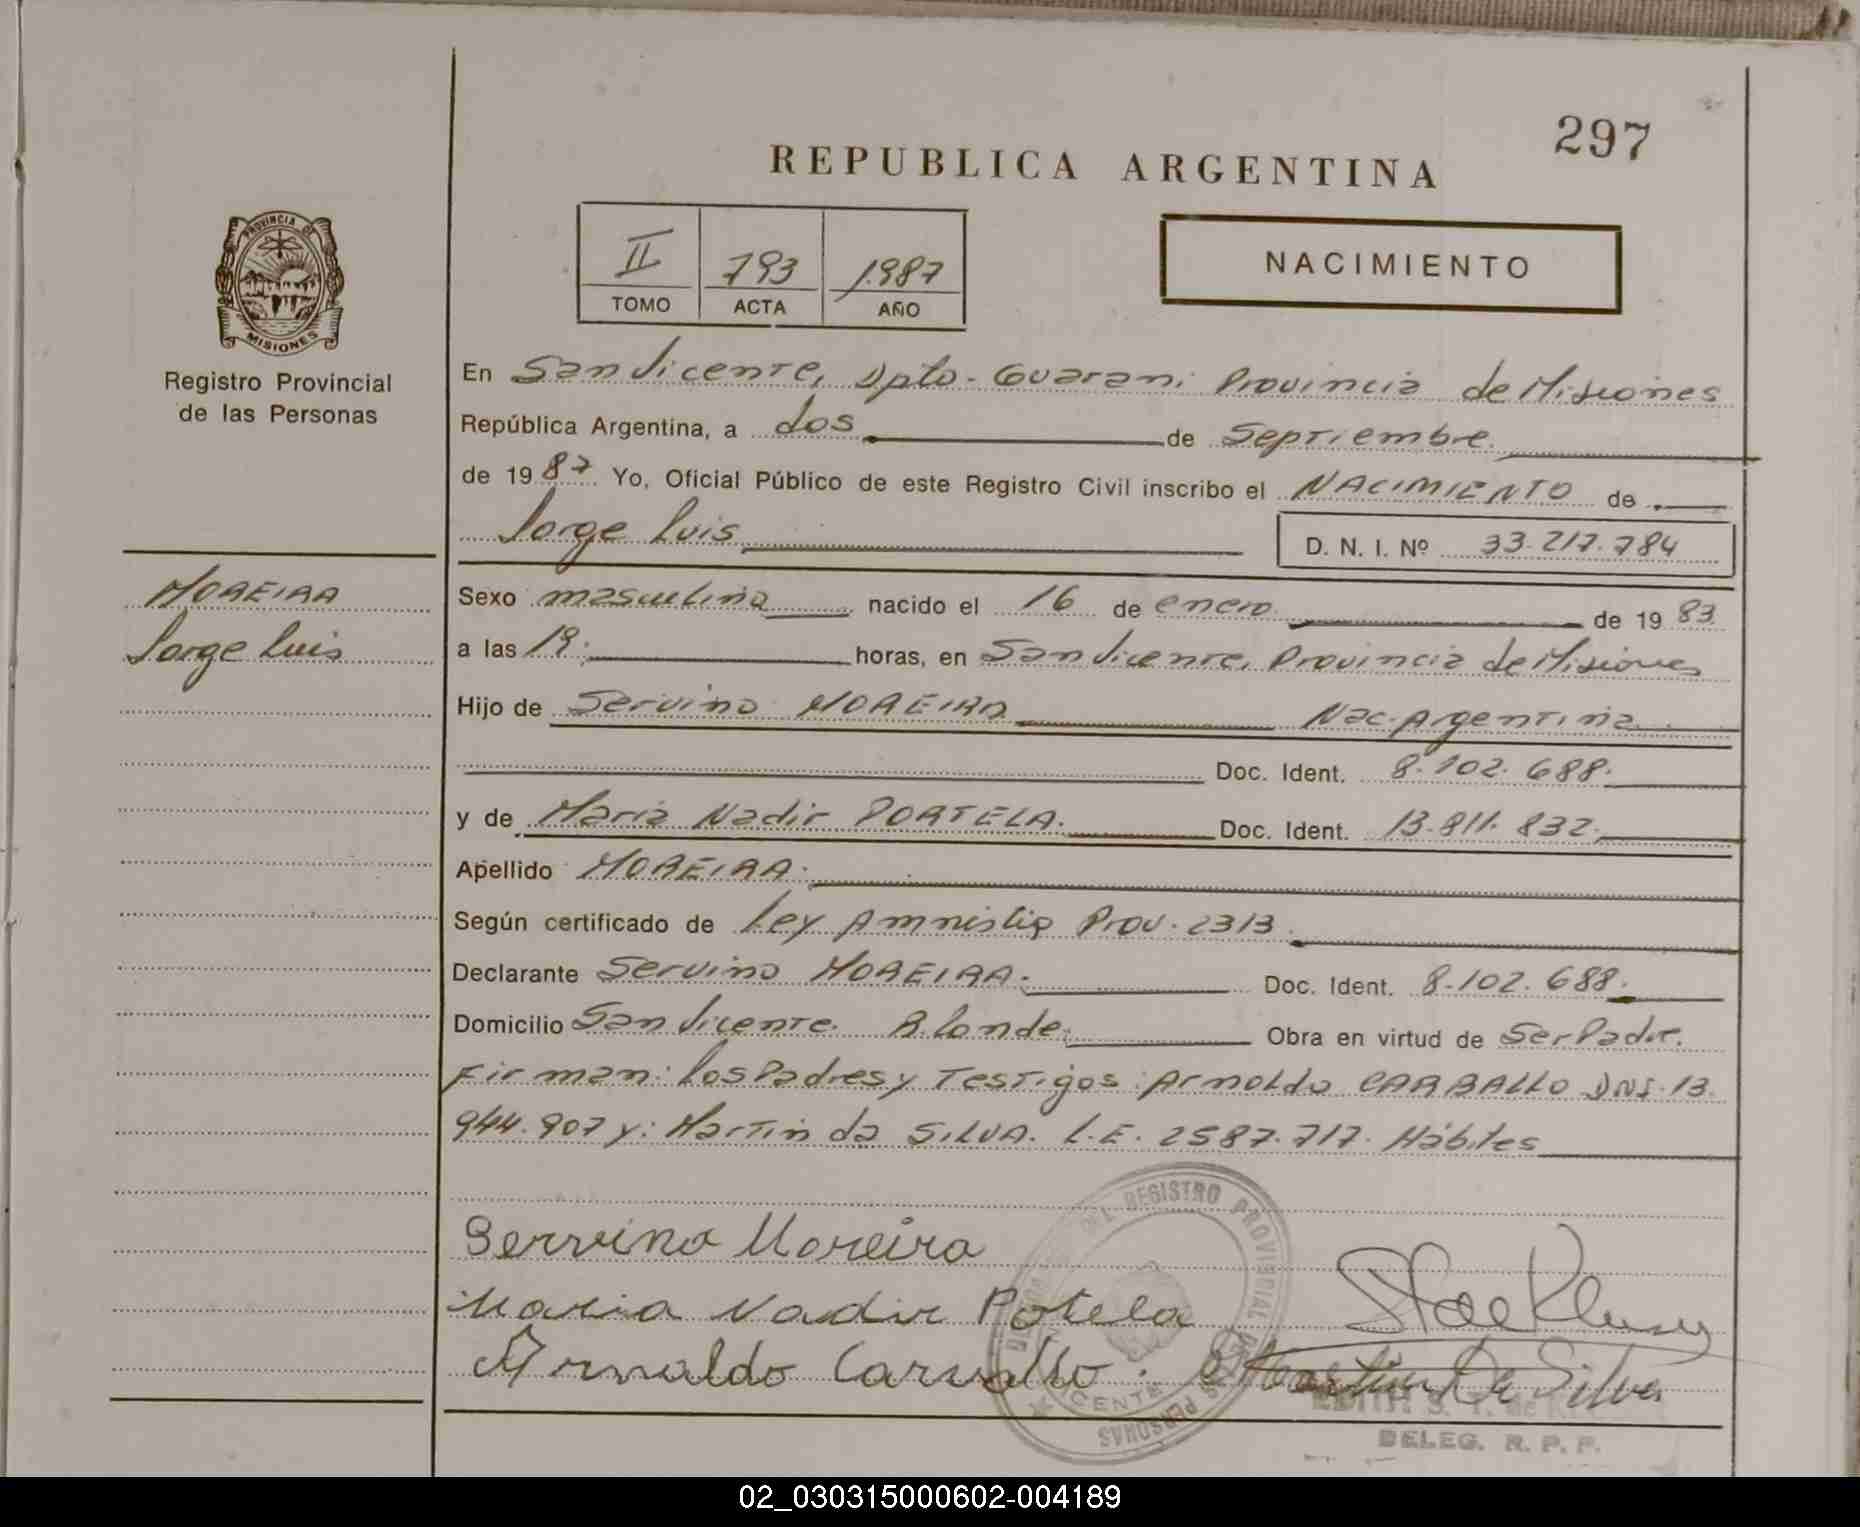 297
REPUBLICA ARGENTINA
PROVINCIA DE
MISIONES
Registro Provincial
de las Personas
II 793 1.987
TOMO ACTA AÑO
NACIMIENTO
En San Vicente, Dpto- Guarani Provincia de Misiones
República Argentina, a dos de Septiembre
de 1987 Yo, Oficial Público de este Registro Civil inscribo el NACIMIENTO de
Jorge Luis D. N. I. Nº 33.217.784
MOREIRA
Jorge Luis
Sexo masculino nacido el 16 de enero de 1983
a las 19. horas, en San Vicente, Provincia de Misiones
Hijo de Servino MOREIRA Nac. Argentina
Doc. Ident. 8.102.688.
y de Maria Nadir PORTELA. Doc. Ident. 13.811.832.
Apellido MOREIRA.
Según certificado de Ley Amnistia Prov. 2313
Declarante Servino MOREIRA. Doc. Ident. 8.102.688.
Domicilio San Vicente. Obra en virtud de Ser Padre.
Firman: Los Padres y Testigos: Arnoldo CARBALLO DNI. 13.
944.907 y: Martin da SILVA. L.E. 2587.717. Hábiles
Servino Moreira
Maria Nadir Potela
Arnaldo Carvallo. Martin Da Silva
DEL REGISTRO PROVINCIAL DE
PERSONAS
VICENTE
EDITH S. T. de
DELEG. R. P. P.
02_030315000602-004189